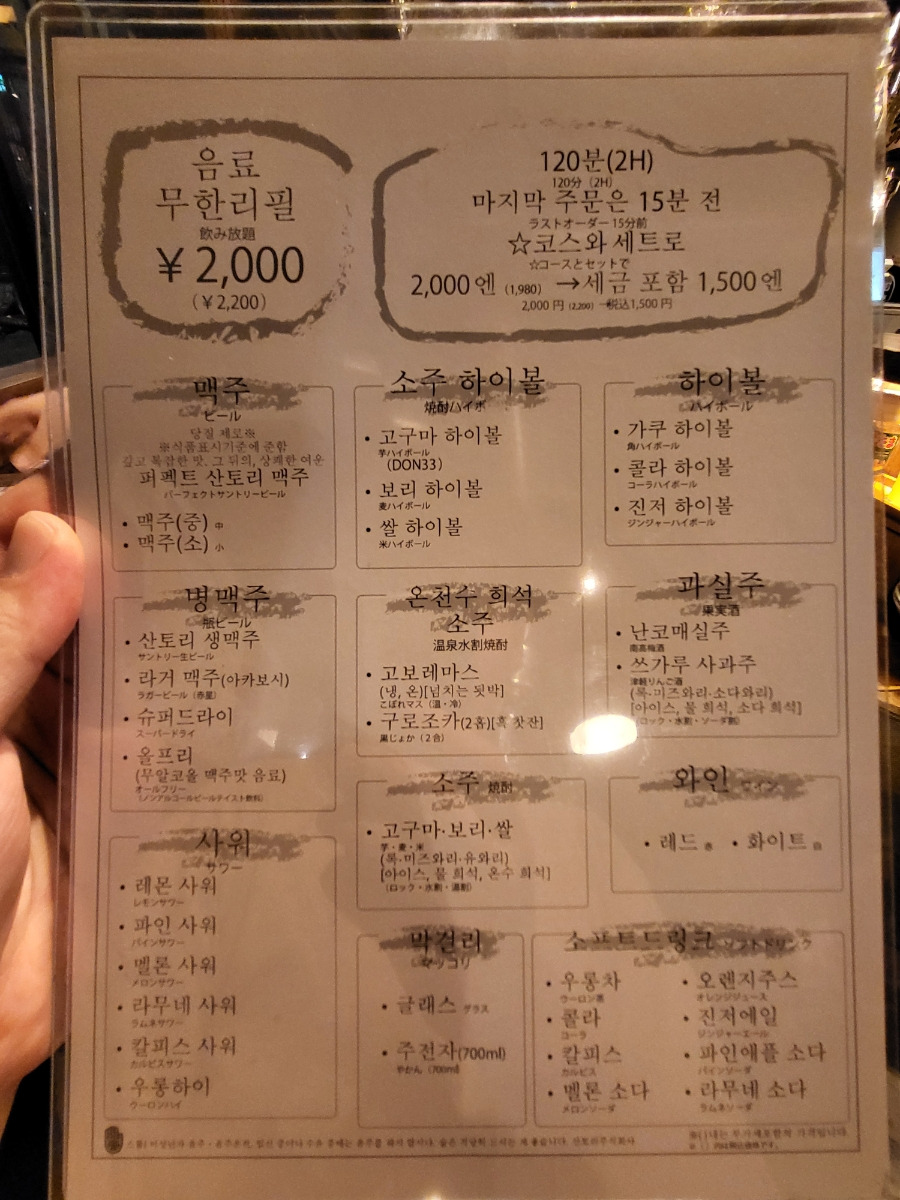 음료
무한리필
飲み放題
¥ 2,000
(¥2,200)
120분(2H)
120分 (2H)
마지막 주문은 15분 전
ラストオーダー 15分前
☆코스와 세트로
☆コースとセットで
2,000 엔 (1,980) →세금 포함 1,500 엔
2,000 円 (2,200) →税込1,500 円
맥주
ビール
당질 제로※
※식품표시기준에 준함
깊고 복잡한 맛. 그 뒤의, 상쾌한 여운
퍼펙트 산토리 맥주
パーフェクトサントリービール
• 맥주(중) 中
• 맥주(소) 小
소주 하이볼
焼酎ハイボ
• 고구마 하이볼
芋ハイボール
(DON33)
• 보리 하이볼
麦ハイボール
• 쌀 하이볼
米ハイボール
하이볼
ハイボール
• 가쿠 하이볼
角ハイボール
• 콜라 하이볼
コーラハイボール
• 진저 하이볼
ジンジャーハイボール
병맥주
瓶ビール
• 산토리 생맥주
サントリー生ビール
• 라거 맥주(아카보시)
ラガービール (赤星)
• 슈퍼드라이
スーパードライ
• 올프리
(무알코올 맥주맛 음료)
オールフリー
(ノンアルコールビールテイスト飲料)
온천수 희석
소주
温泉水割焼酎
• 고보레마스
(냉, 온)[넘치는 됫박]
こぼれマス (温・冷)
• 구로조카(2홉)[흑 잣잔]
黒じょか (2合)
과실주
果実酒
• 난코매실주
南高梅酒
• 쓰가루 사과주
津軽りんご酒
(록·미즈와리·소다와리)
[아이스, 물 희석, 소다 희석]
(ロック・水割・ソーダ割)
소주 焼酎
• 고구마·보리·쌀
芋・麦・米
(록·미즈와리·유와리)
[아이스, 물 희석, 온수 희석]
(ロック・水割・湯割)
와인 ワイン
• 레드 赤 • 화이트 白
사워
サワー
• 레몬 사워
レモンサワー
• 파인 사워
パインサワー
• 멜론 사워
メロンサワー
• 라무네 사워
ラムネサワー
• 칼피스 사워
カルピスサワー
• 우롱하이
ウーロンハイ
막걸리
マッコリ
• 글래스 グラス
• 주전자(700ml)
やかん (700ml)
소프트드링크 ソフトドリンク
• 우롱차
ウーロン茶
• 콜라
コーラ
• 칼피스
カルピス
• 멜론 소다
メロンソーダ
• 오렌지주스
オレンジジュース
• 진저에일
ジンジャーエール
• 파인애플 소다
パインソーダ
• 라무네 소다
ラムネソーダ
※( )내는 부가세포함한 가격입니다.
※( )内は税込価格です。